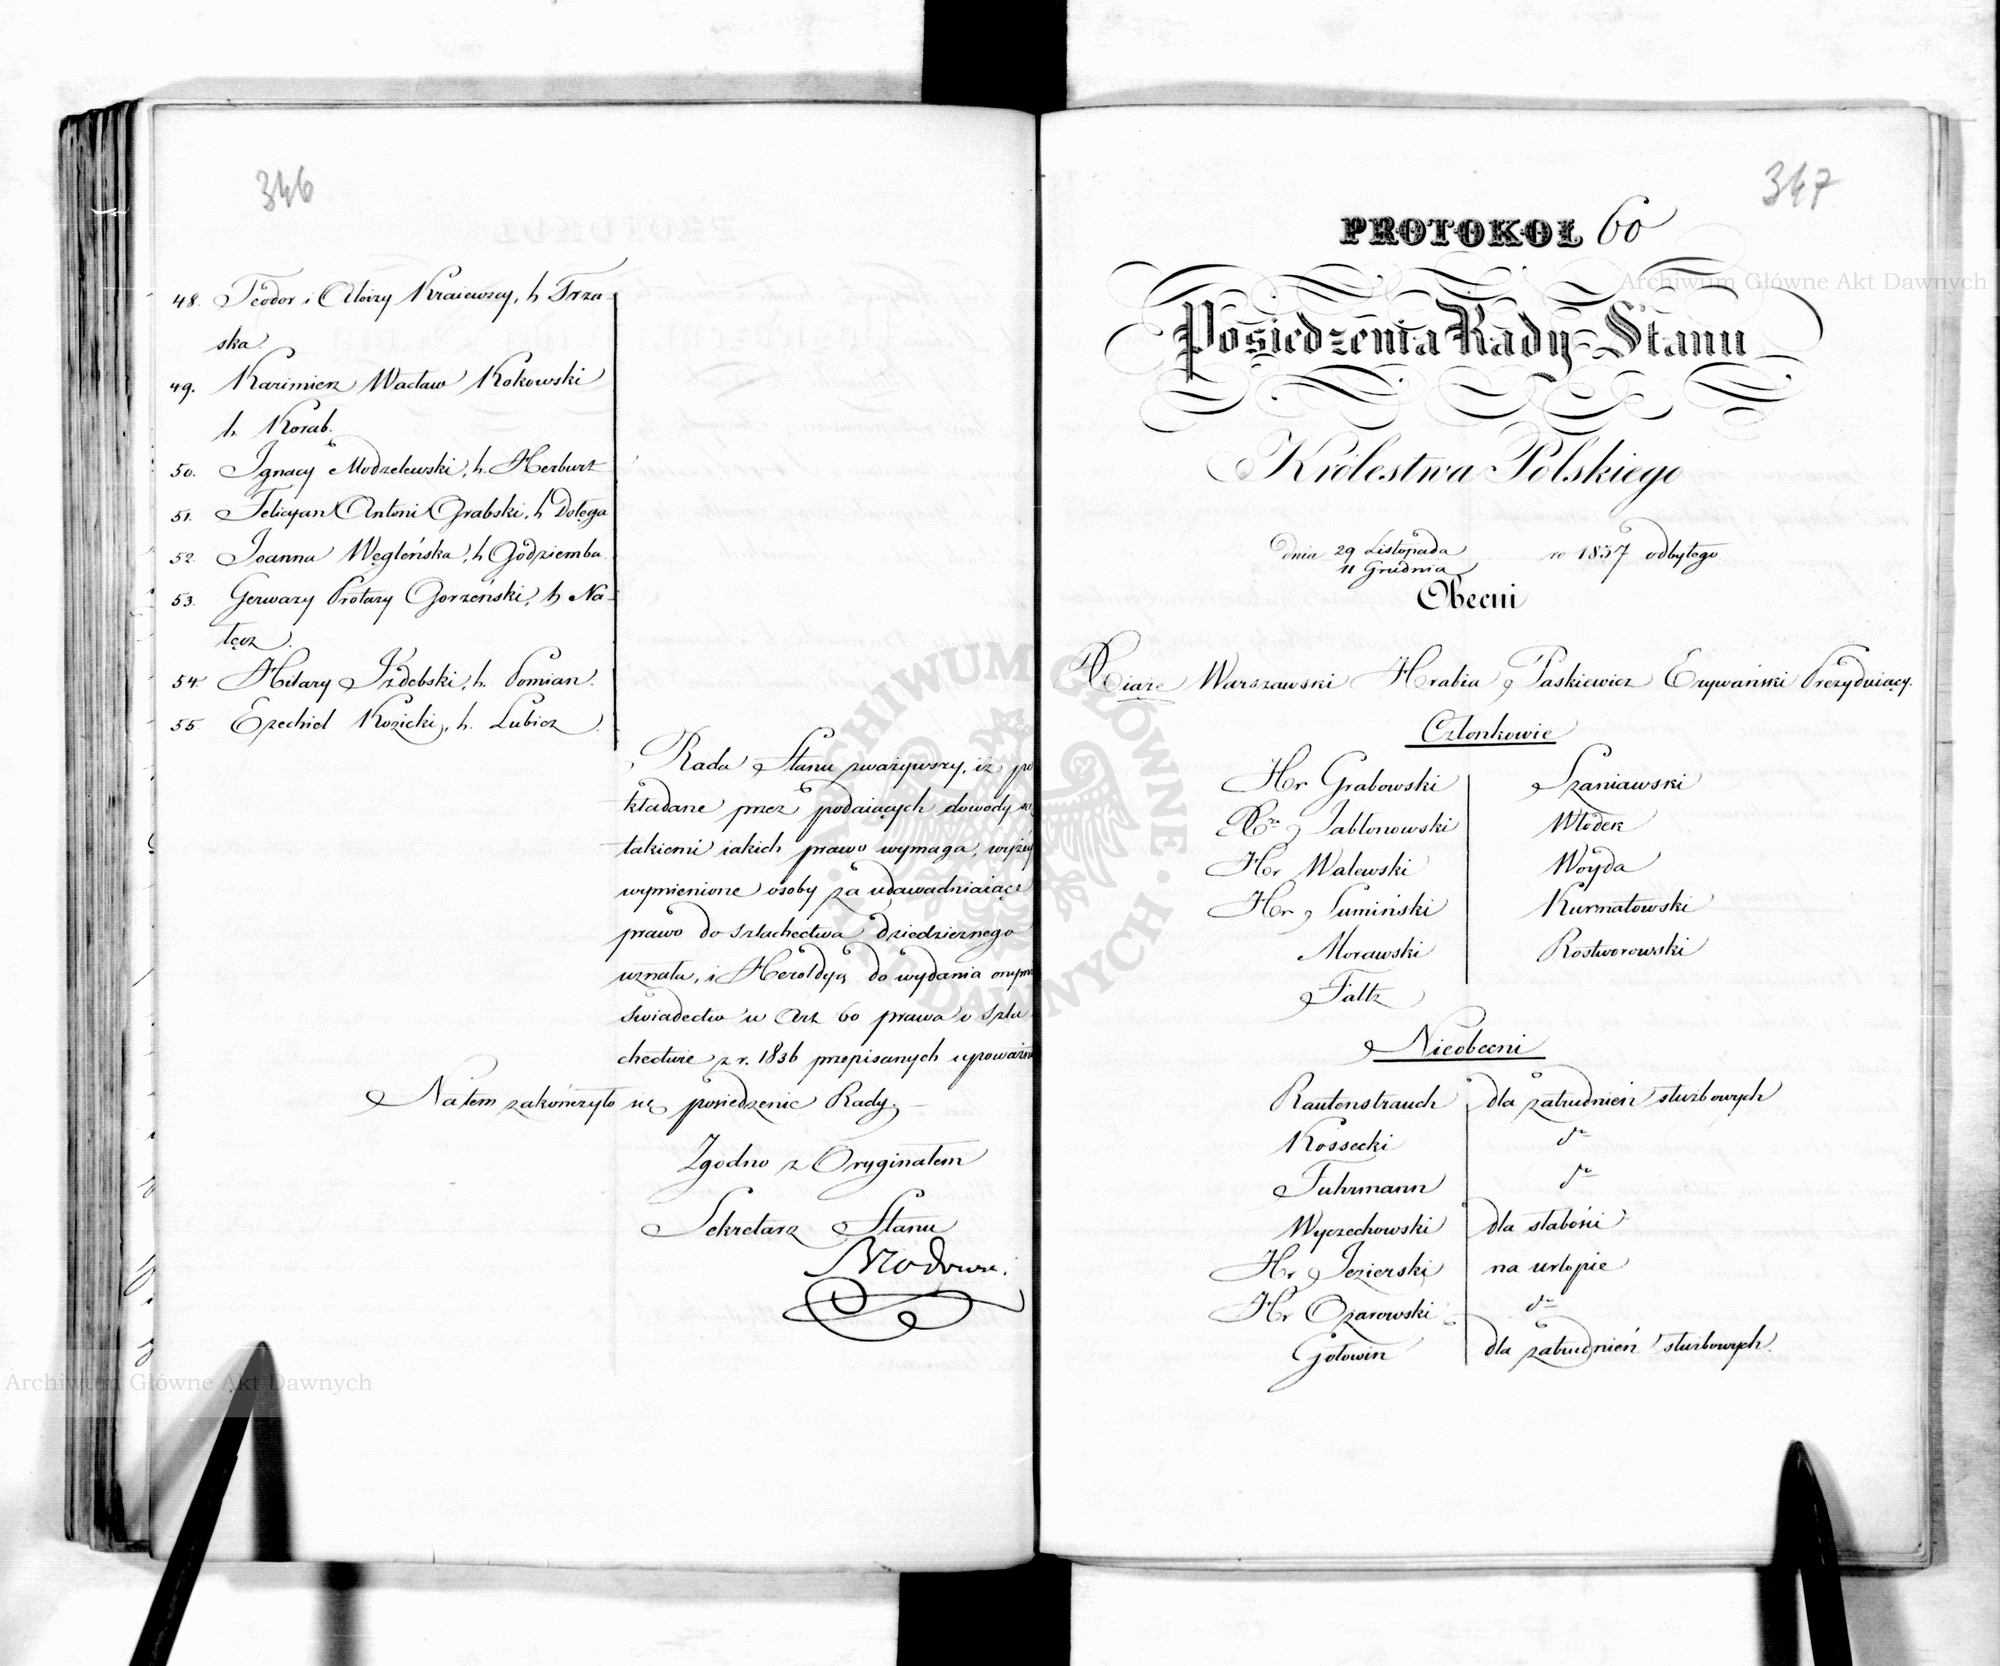 346
48. Teodor i Aloizy Kraiewscy, h Trza-
ska.
49. Kazimierz Wacław Kokowski
h. Korab.
50. Ignacy Modzelewski, h. Herburt
51. Felicyan Antoni Grabski, h Dołęga
52. Joanna Węgleńska, h Godziemba.
53. Gerwazy Protazy Gorzeński, h Na-
łęcz.
54. Hilary Izdebski, h. Pomian.
55. Ezechiel Kozicki, h. Lubicz.
Rada Stanu zważywszy, iż po
kładane przez podaiących dowody są
takiemi iakich prawo wymaga, wyżéj
wymienione osoby za udawadniaiące
prawo do szlachectwa dziedzicznego
uznała, i Heroldyą do wydania onym
świadectw w Art 60 prawa o szla
chectwie z r. 1836 przepisanych upoważni
Na tem zakończyło się posiedzenie Rady. –
Zgodno z Oryginałem
Sekretarz Stanu
347
PROTOKOŁ 60
Posiedzenia Rady Stanu
Królestwa Polskiego
dnia 29 Listopada
11 Grudnia
ro 1837 odbytego
Obecni
Xiąże Warszawski Hrabia Paskiewicz Erywański Prezyduiący.
Członkowie
Hr Grabowski Szaniawski
Xże Jabłonowski Włodek
Hr Walewski Woyda
Hr Łumiński Kurnatowski
Morawski Rostworowski
Faltz
Nieobecni
Rautenstrauch dla zatrudnień służbowych
Kossecki do
Fuhrmann do
Wyczechowski dla słabości
Hr Jezierski na urlopie
Hr Ożarowski do
Gołowin dla zatrudnień służbowych.
Archiwum Główne Akt Dawnych
Archiwum Główne Akt Dawnych
ARCHIWUM GŁÓWNE AKT DAWNYCH